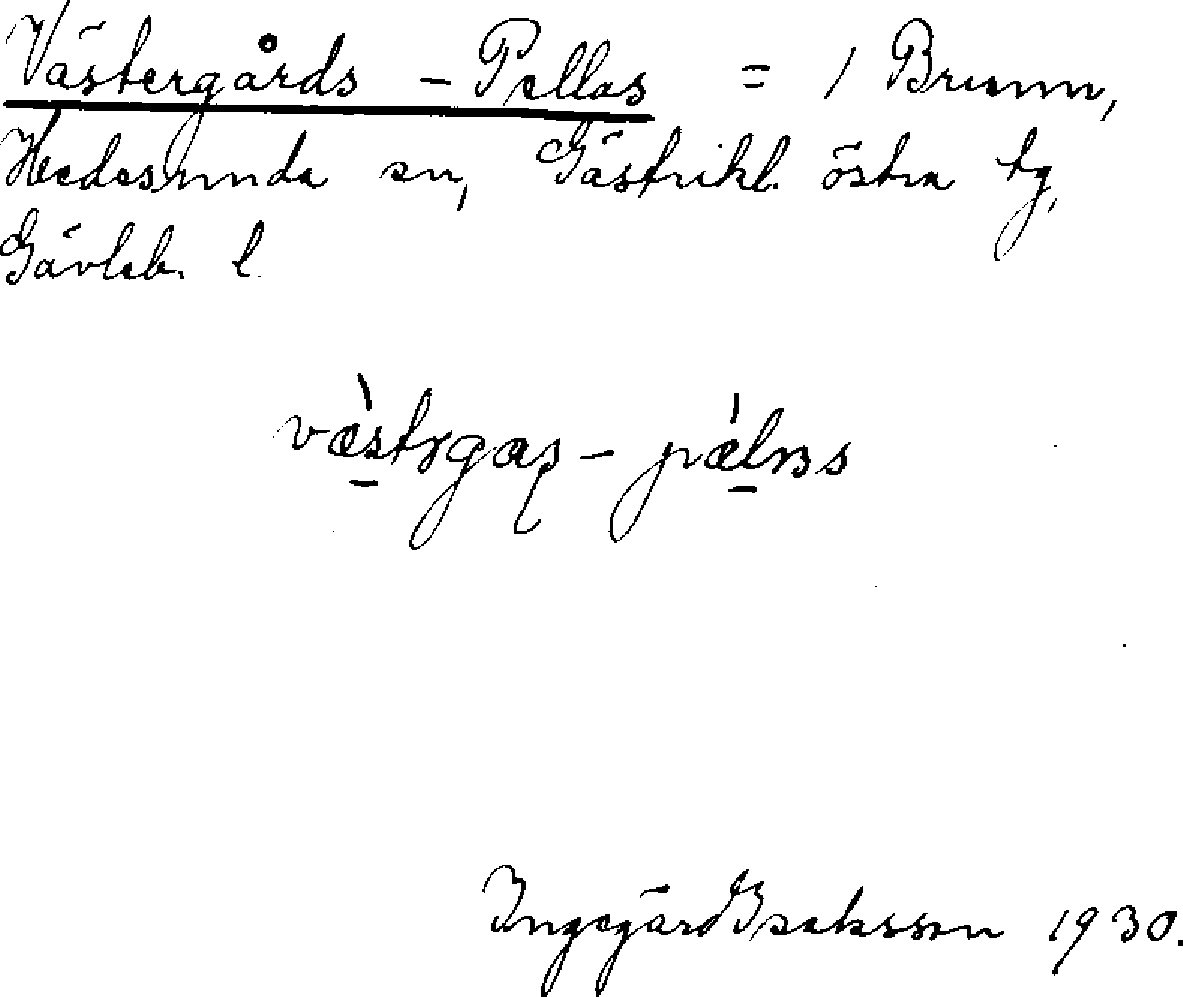 Västergårds - Pellas = 1 Brunn,
Hedesunda sn, Gästrikl. östra tg,
Gävleb. l.
Ingegärd Isaksson 1930.